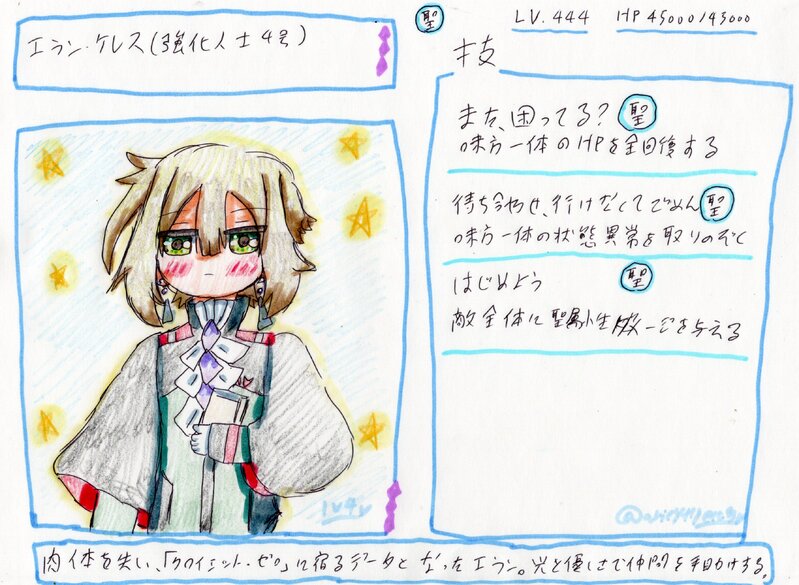 エラン・ケレス(強化人士4号)
聖 LV.444 HP 45000/45000
技
また、困ってる? 聖
味方一体のHPを全回復する
待ち合わせ、行けなくてごめん 聖
味方一体の状態異常を取りのぞく
はじめよう 聖
敵全体に聖属性ダメージを与える
肉体を失い、「クワイエット・ゼロ」に宿るデータとなったエラン。光と優しさで仲間を手助けする。